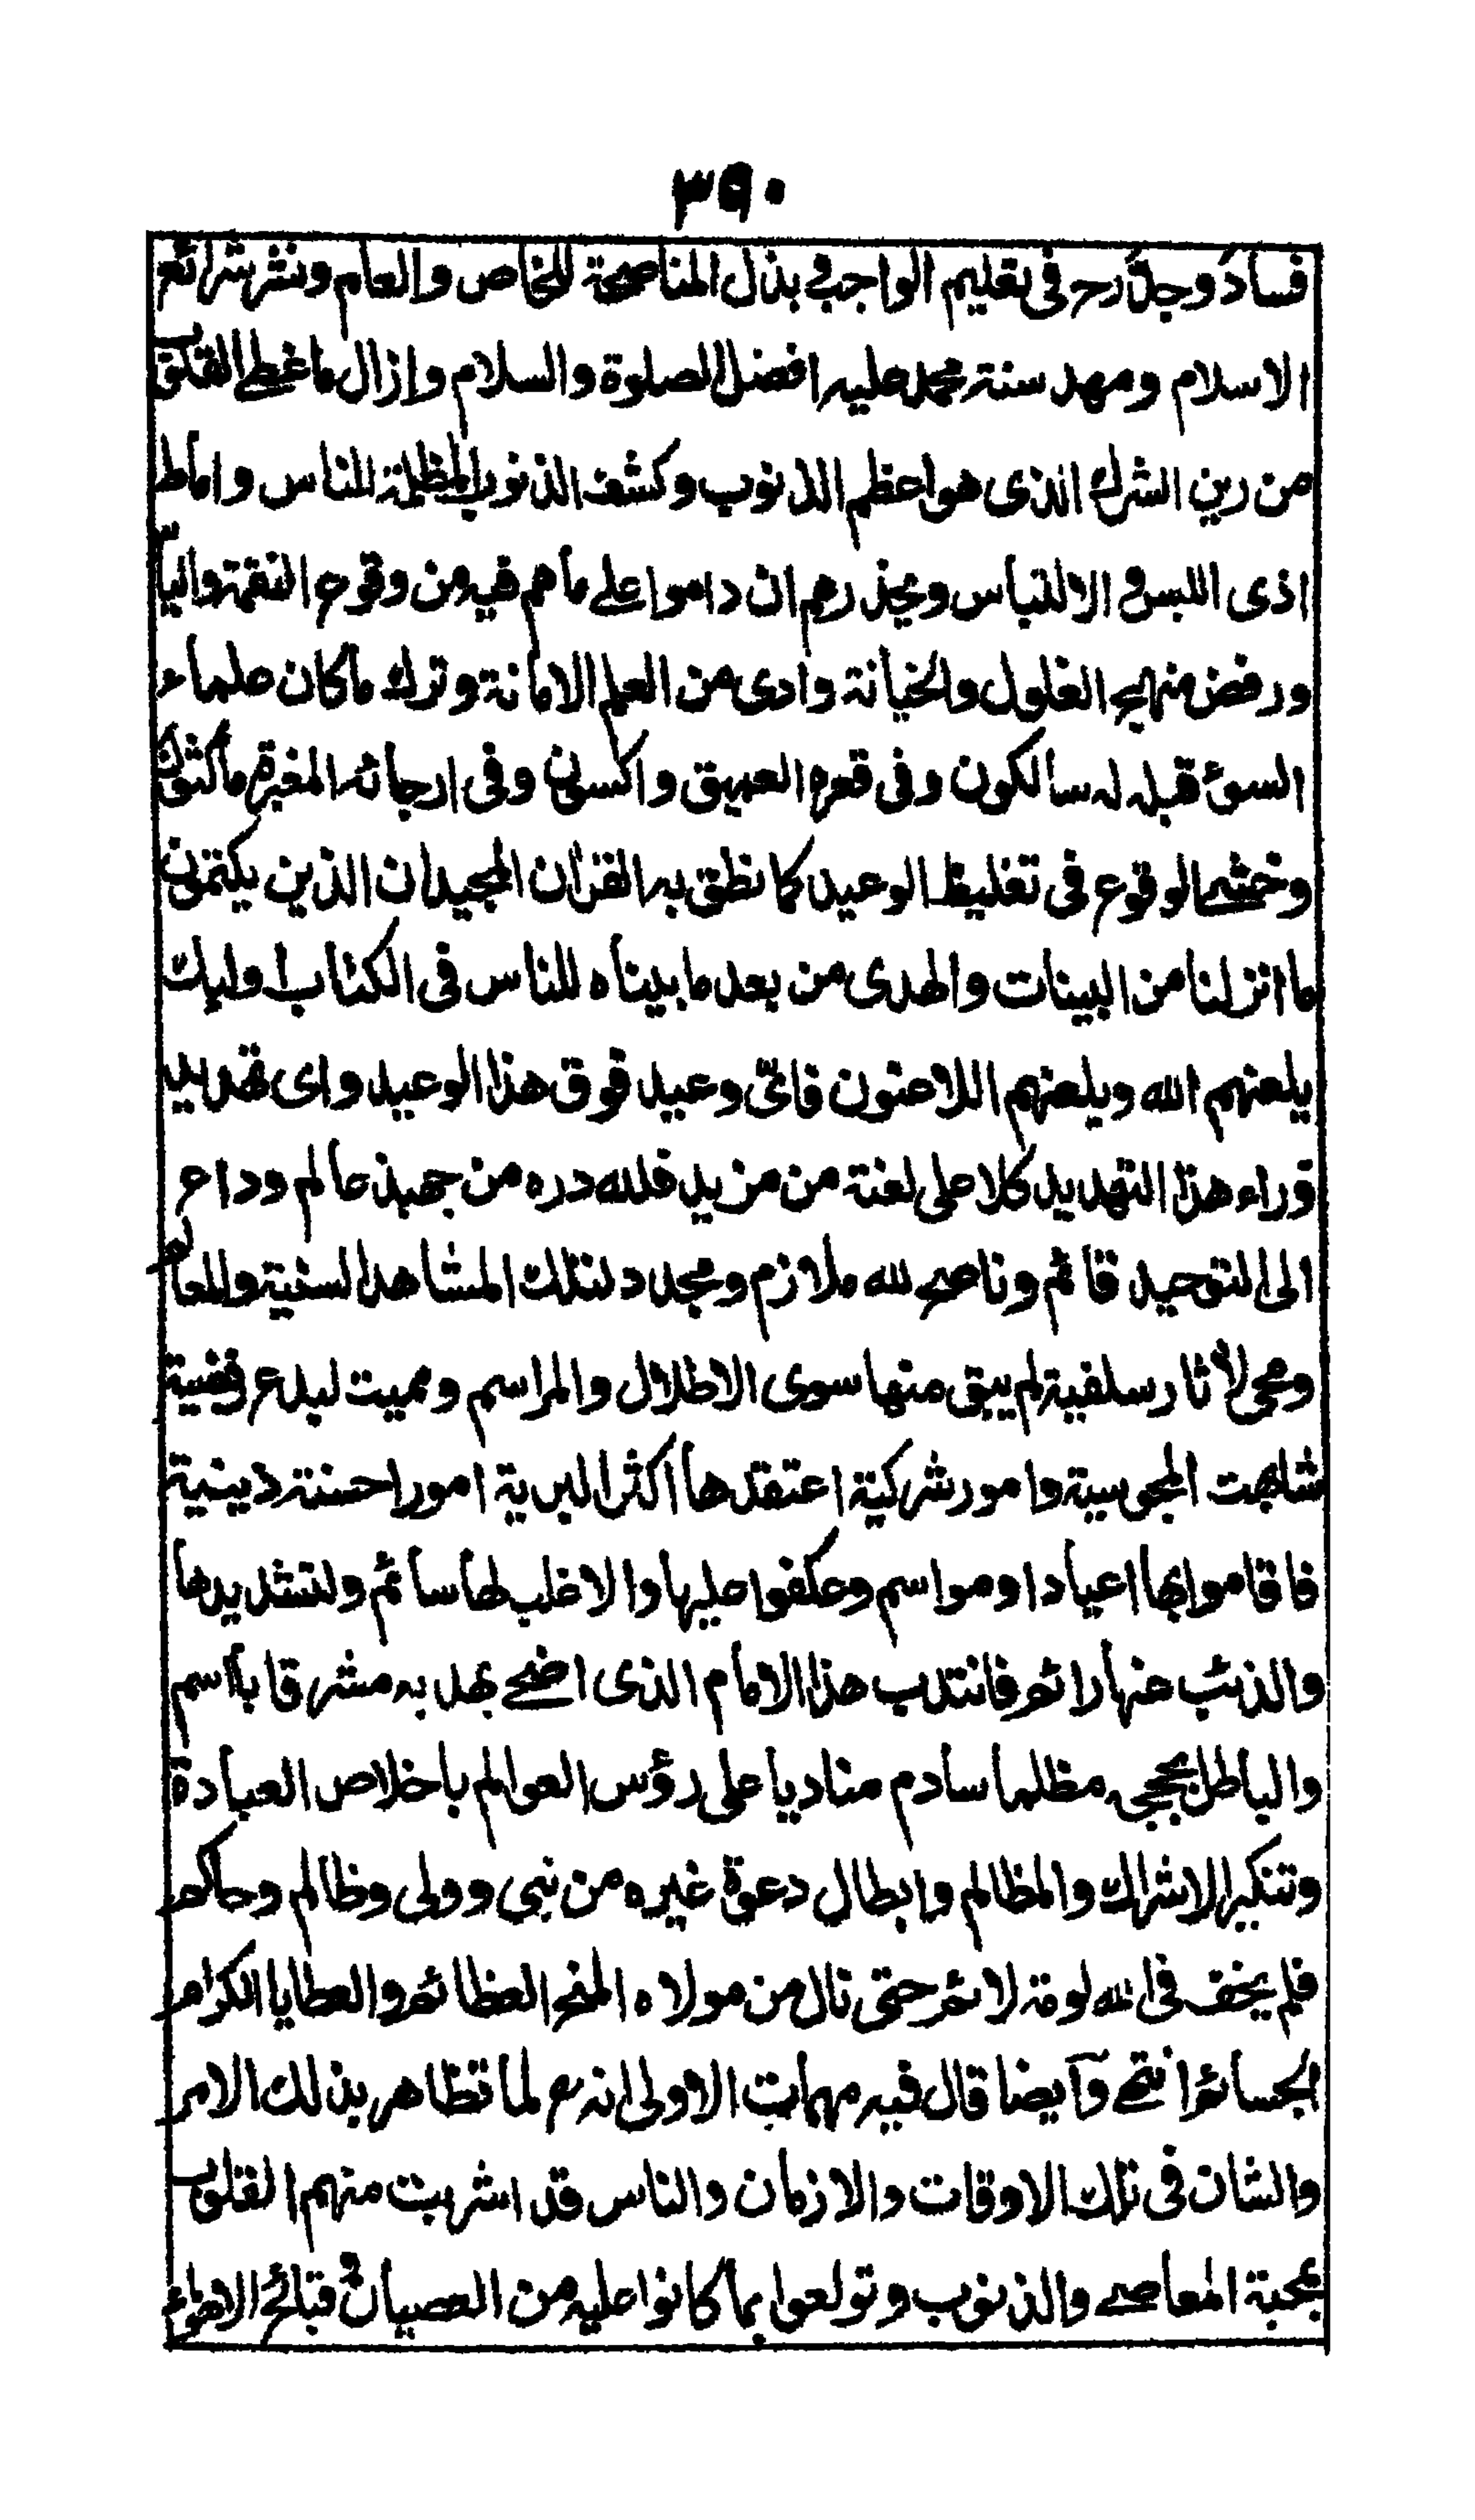 ٣٩٠
فساد وجل رح فى تعليم الواجب فى بذل المناصحة للخاص والعام ونشر شرائع
الاسلام ومهد سنة محمد عليه افضل الصلوة والسلام وازال ما غطى القلوب
من رين الشرك الذى هو اعظم الذنوب وكشف الذنوب المظلمة للناس واماط
اذى اللبس والالتباس ويحذرهم ان داموا على ما هم فيه من وقوع النقمة والباس
ورفض منهج الغلول والخيانة وادى من العلم الامانة وترك ما كان علماء
السوء قبله له سالكون وفى قعره العميق واكسون وفى ارجائه المغبرة ماكثون
وخشى الوقوع فى تغليظ الوعيد كما نطق به القران المجيد ان الذين يكتمون
ما انزلنا من البينات والهدى من بعد ما بيناه للناس فى الكتاب اولئك
يلعنهم الله ويلعنهم اللاعنون فاىّ وعيد فوق هذا الوعيد واى تهديد
وراء هذا التهديد كلا على لعنة من مزيد فلله دره من جهبذ عالم وداع
الى التوحيد قائم وناصح لله ملازم ومجدد لتلك المشاهد السنية والمعالم
ومحى لآثار سلفية لم يبق منها سوى الاطلال والمراسم ومميت لبدع رفضية
شابهت المجوسية وامور شركية اعتقدها اكثر البرية امورا حسنة دينية
فاقاموا بها اعيادا ومواسم وعكفوا عليها والاغلب لها سائم ولتشديدها
والذب عنها رائم فانتدب هذا الامام الذى اضحى به مشرقا باسم
والباطل مظلما سادم مناديا على رؤس العوالم باخلاص العبادة
وتنكير الاشراك والمظالم وابطال دعوة غيره من نبى وولى وظالم وحاكم
فلم يخف فى الله لومة لائم حتى نال من مولاه المنح العظائم والعطايا الكرام
الجسائم انتهى وايضا قال فيه مهمات الاولى انه رح لما تظاهر بذلك الامر
والشان فى تلك الاوقات والازمان والناس قد اشربت منهم القلوب
بمحبة المعاصى والذنوب وتولعوا بما كانوا عليه من العصيان وقبائح الاهواء